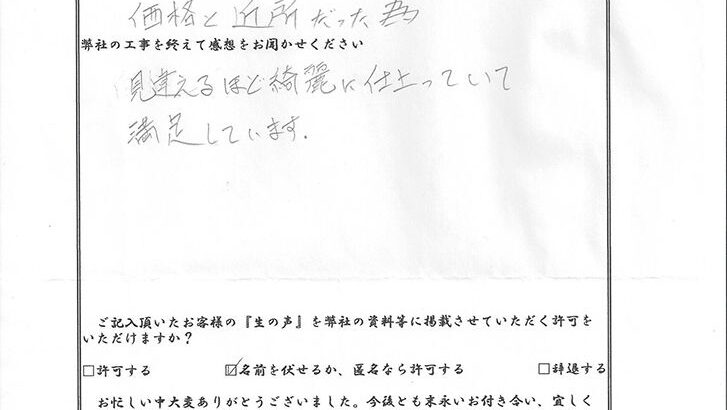 価格と近所だった為
弊社の工事を終えて感想をお聞かせください
見違えるほど綺麗に仕上っていて
満足しています.
ご記入頂いたお客様の『生の声』を弊社の資料等に掲載させていただく許可を
いただけますか？
□許可する ☑名前を伏せるか、匿名なら許可する □辞退する
お忙しい中大変ありがとうございました。今後とも末永いお付き合い、宜しく